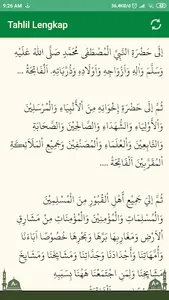 9:26 AM
Tahlil Lengkap
إِلَى حَضْرَةِ النَّبِيِّ الْمُصْطَفَى مُحَمَّدٍ صَلَّى اللهُ عَلَيْهِ
وَسَلَّمَ وَاٰلِهِ وَاَزْوَاجِهِ وَاَوْلَادِهِ وَذُرِّيَّاتِهِ. اَلْفَاتِحَةُ ...
ثُمَّ اِلَى حَضْرَةِ اِخْوَانِهِ مِنَ الْأَنْبِيَاءِ وَالْمُرْسَلِيْنَ
وَالْأَوْلِيَاءِ وَالشُّهَدَاءِ وَالصَّالِحِيْنَ وَالصَّحَابَةِ
وَالتَّابِعِيْنَ وَالْعُلَمَاءِ وَالْمُصَنِّفِيْنَ وَجَمِيْعِ الْمَلَائِكَةِ
الْمُقَرَّبِيْنَ. اَلْفَاتِحَةُ ...
ثُمَّ اِلَى جَمِيْعِ أَهْلِ الْقُبُوْرِ مِنَ الْمُسْلِمِيْنَ
وَالْمُسْلِمَاتِ وَالْمُؤْمِنِيْنَ وَالْمُؤْمِنَاتِ مِنْ مَشَارِقِ
الْأَرْضِ وَمَغَارِبِهَا بَرِّهَا وَبَحْرِهَا خُصُوْصًا اٰبَاءَنَا
وَأُمَّهَاتِنَا وَأَجْدَادَنَا وَجَدَّاتِنَا وَمَشَايِخَنَا وَمَشَايِخَ
مَشَايِخِنَا وَلِمَنِ اجْتَمَعْنَا هٰهُنَا بِسَبَبِهِ